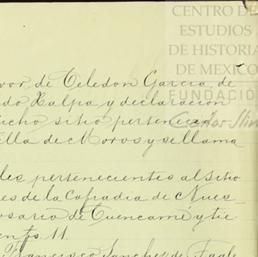 CENTRO DE
ESTUDIOS
DE HISTORIA
DE MEXICO
FUNDACIÓN
vor de Celedon Garcia de
do Xalpa y declaracion
icho sitio pertenecen
Carlos Slim
illa de Moros y se llama
les pertenecientes al sitio
es de la Cofradia de Nues
osario de Cuencamé y tie
en fs 11.
Francisco Sanchez de Tagle